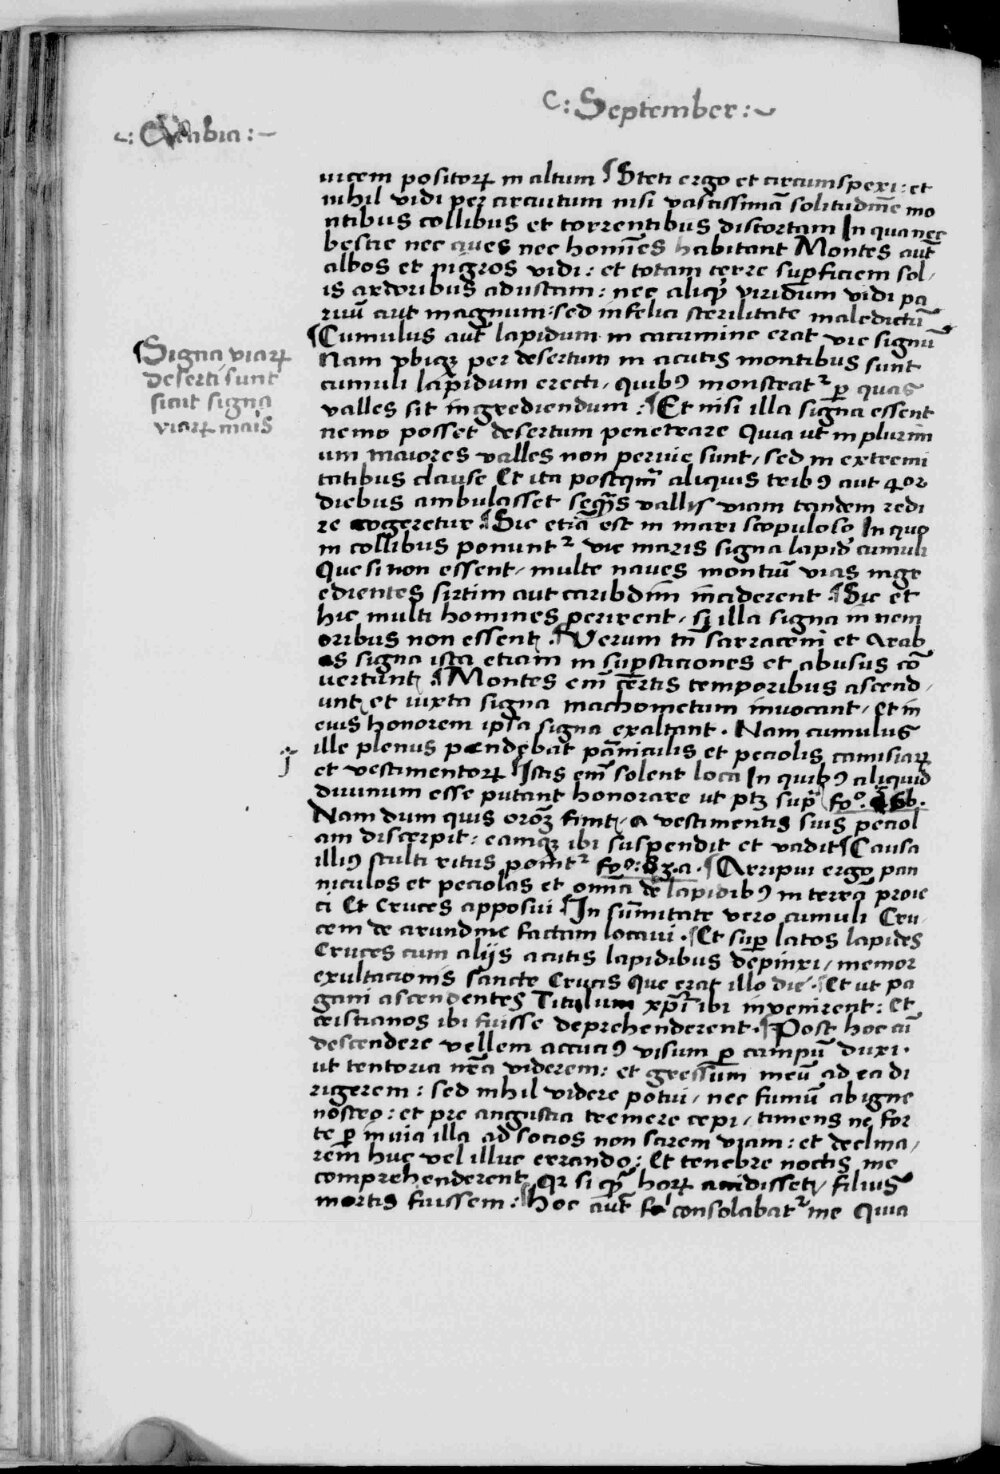 C: September:~
~: Arabia :~
uicem positoꝝ in altum ¶ Steti ergo et circumspexi: et
nihil vidi per circuitum nisi vastissimā solitudinē mo
ntibus collibus et torrentibus distortam In qua nec
bestie nec aues nec homīes habitant Montes aut̄
albos et nigros vidi: et totam terre suꝑficiem sol/
is ardoribus adustam: nec aliqꝫ viridum vidi pa
ruū aut magnum: sed infelici sterilitate maledictū
¶Cumulus aut̄ lapidum in cacumine erat vie signū
Nam vbiqꝫ per desertum in acutis montibus sunt
cumuli lapidum erecti, quibꝰ monstrat᷑ ꝑ quas
valles sit ingrediendum: ¶Et nisi illa signa essent
nemo posset desertum penetrare Quia ut in plurim
um maiores valles non peruie sunt, sed in extremi
tatibus clause Et ita postqm̄ aliquis tribꝰ aut 4or
diebus ambulasset seqn̄s vallis viam tandem redi
re cogeretur ¶Sic etiā est in mari scopuloso In quo
in collibus ponunt᷑ vie maris signa lapidū cumuli
Que si non essent, multe naues montiū vias ingr
edientes sirtim aut caribdim inciderent ¶Sic et
hic multi homines perirent, si illa signa in nem
oribus non essent ¶Verum tn̄ sarraceni et Arab
es signa ista etiam in suꝑsticiones et abusus cō
uertunt ¶Montes em̄ certis temporibus ascend/
unt et iuxta signa machometum inuocant, et in
eius honorem ipsa signa exaltant. Nam cumulus
ille plenus pendebat pāniculis et peciolis camisiaꝝ
et vestimentoꝝ ¶Istis em̄ solent loca In quibꝰ aliquid
diuinum esse putant honorare ut ptꝫ supᵃ fo̊.
Nam dum quis orōꝫ finit, a vestimentis suis peciol
am discerpit, eamqꝫ ibi suspendit et vadit ¶Causa
illiꝰ stulti ritus ponit᷑ fo̊: 83.a. ¶Arripui ergo pan
niculos et peciolas et omīa de lapidibꝰ in terrā proie
ci Et Cruces apposui ¶In sūmitate vero cumuli Cru/
cem de arundine factam locaui. ¶Et suꝑ latos lapides
Cruces cum alijs acutis lapidibus depinxi, memor
exultacionis sancte Crucis que erat illo die. ¶Et ut pa
gani ascendentes Titulum xp̄i ibi inuenirent: Et
cristianos ibi fuisse deprehenderent. ¶Post hoc cū
descendere vellem accuciꝰ visum ꝑ campū duxi.
ut tentoria nr̄a viderem: et gressum meū ad ea di
rigerem: sed nihil videre potui, nec fumū ab igne
nostro: et pre angustia tremere cepi, timens ne for
te ꝑ inuia illa ad socios non scirem viam: et declina/
rem huc vel illuc errando: Et tenebre noctis me
comprehenderent, qꝛ si hoꝝ accidisset, filius
mortis fuissem: ¶Hoc aut̄ consolabat᷑ me Quia
¶Signa viaꝝ
deserti sunt
sicut signa
viaꝝ maīs